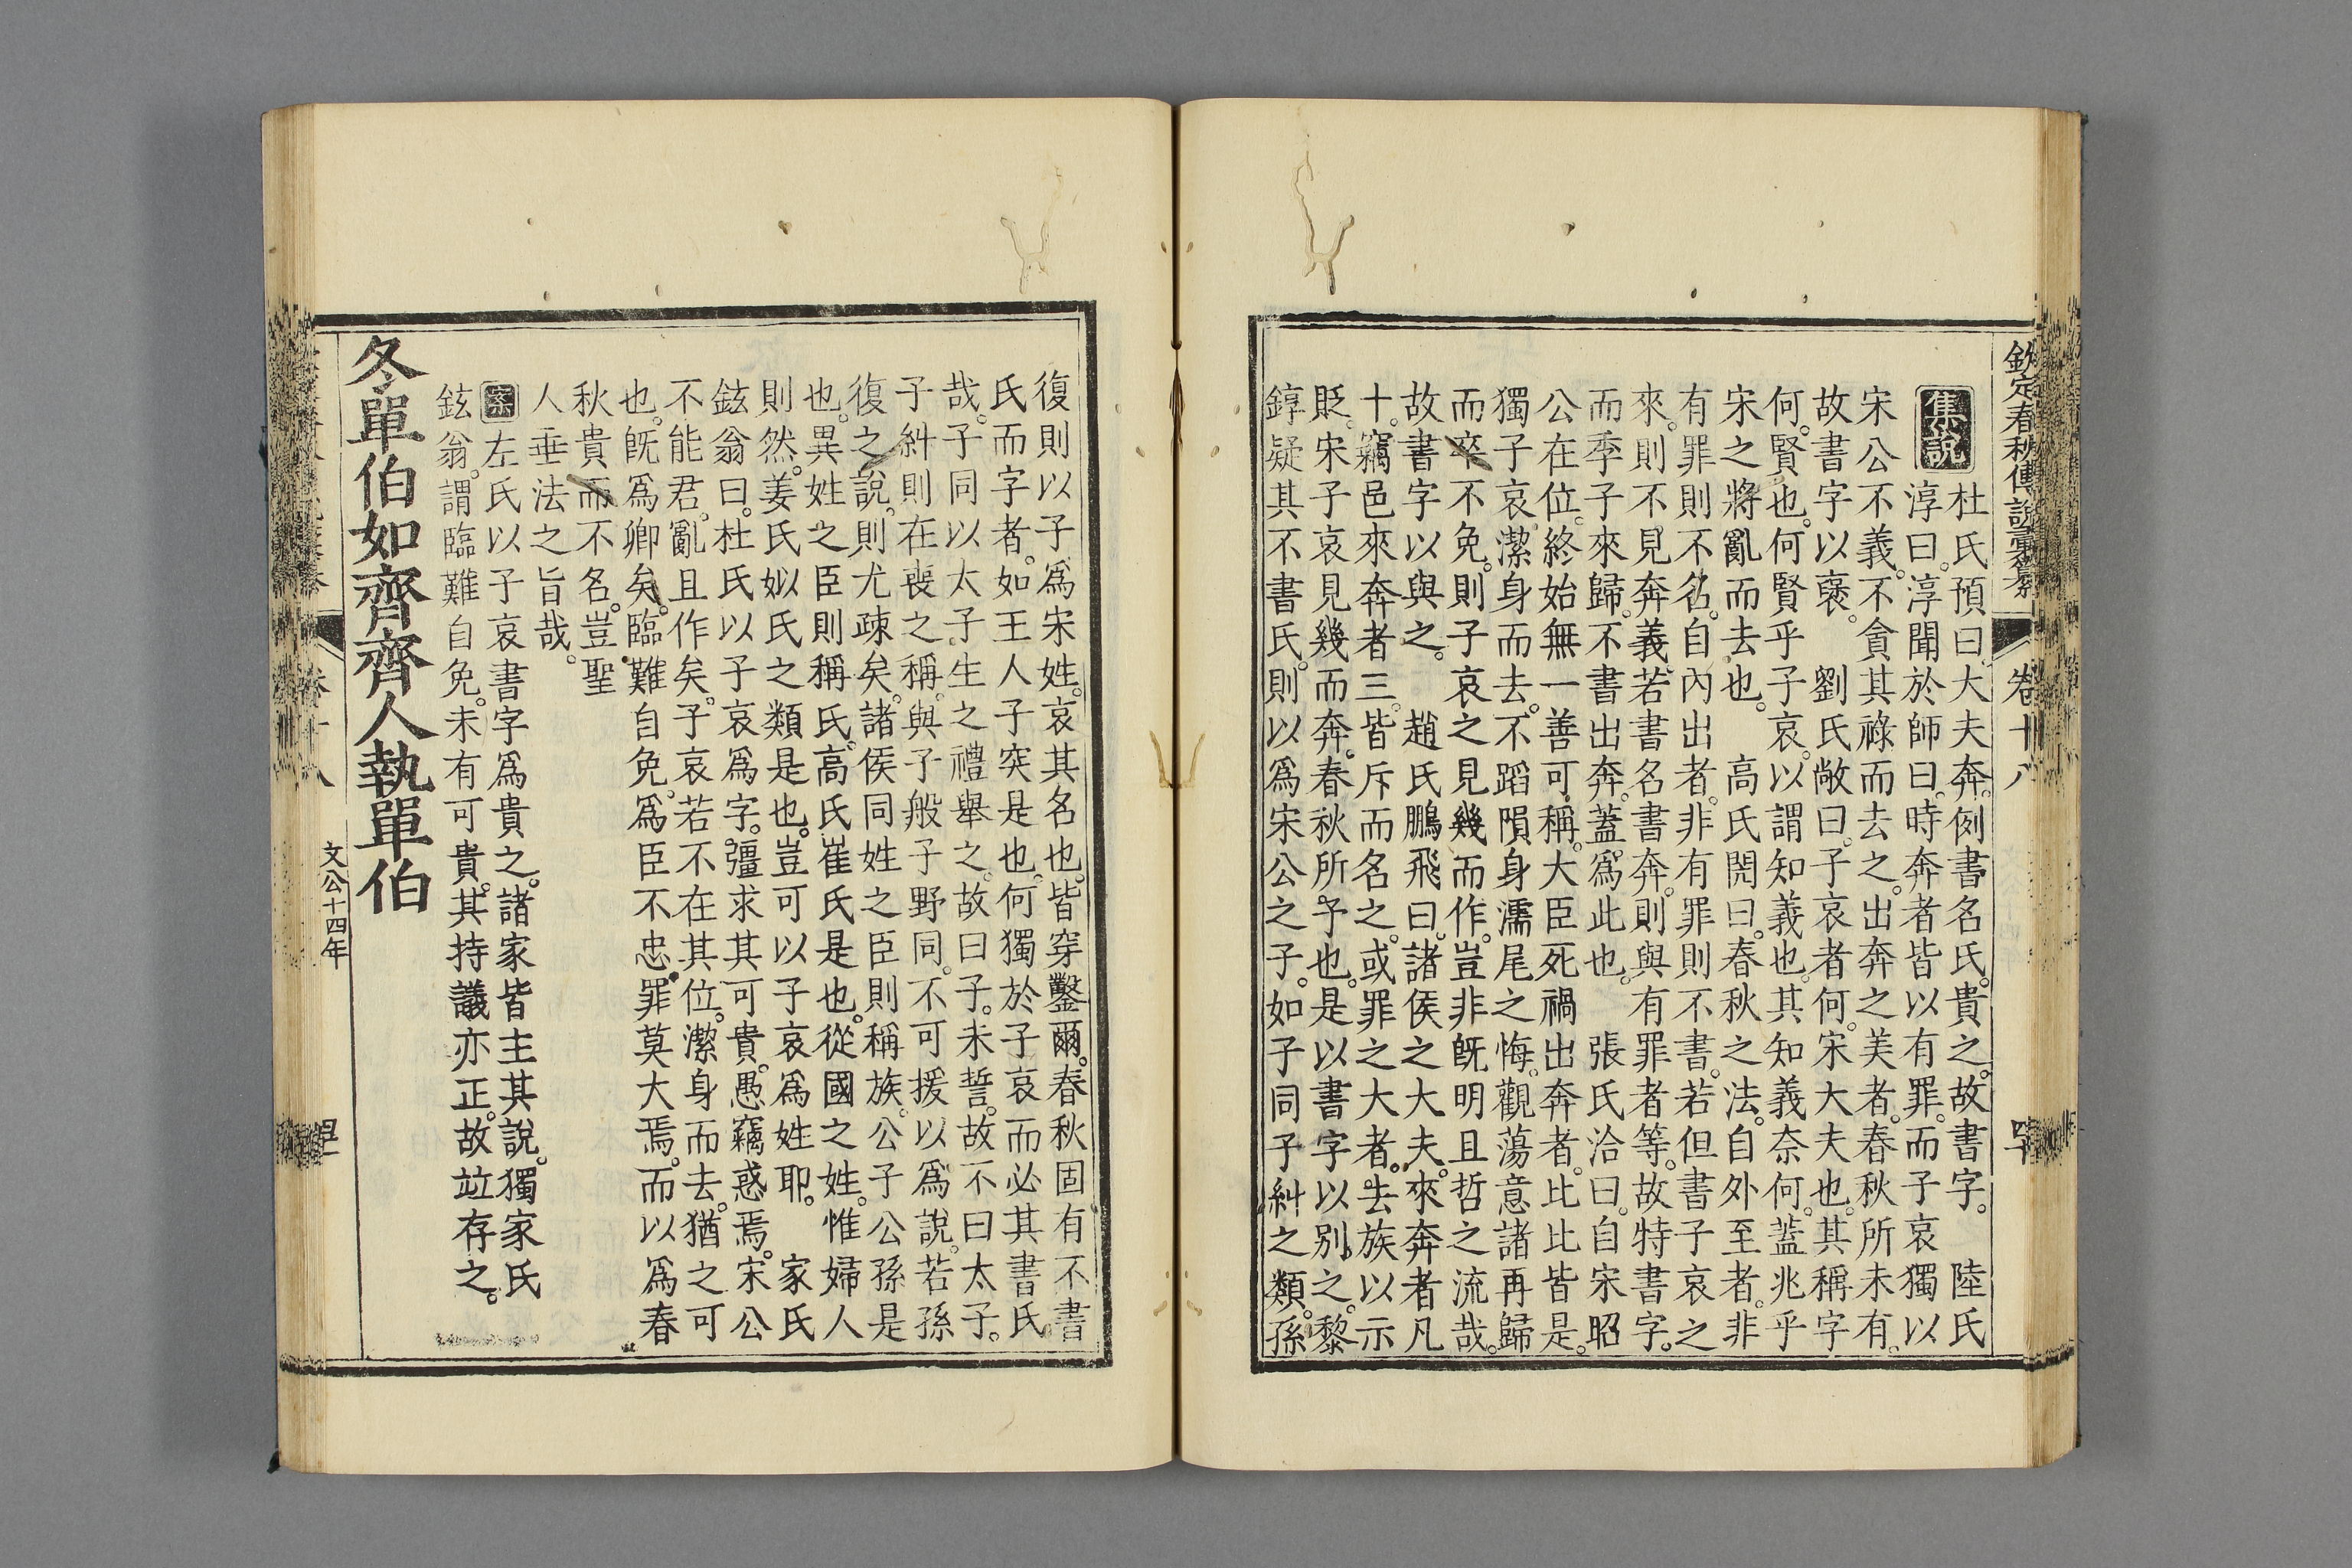 欽定春秋傳說彙纂 卷十八
集說 杜氏預曰大夫奔例書名氏貴之故書字。 陸氏
淳曰淳聞於師曰時奔者皆以有罪而子哀獨以
宋公不義不貪其祿而去之出奔之美者春秋所未有
故書字以褒。 劉氏敞曰子哀者何宋大夫也其稱字
何賢也何賢乎子哀以謂知義也其知義奈何蓋兆乎
宋之將亂而去也。 高氏閌曰春秋之法自外至者非
有罪則不名自內出者非有罪則不書若但書子哀之
來則不見奔義若書名書奔則與有罪者等故特書字
而季子來歸不書出奔蓋為此也。 張氏洽曰自宋昭
公在位終始無一善可稱大臣死禍出奔者比比皆是
獨子哀潔身而去不蹈隕身濡尾之悔觀蕩意諸再歸
而卒不免則子哀之見幾而作豈非旣明且哲之流哉
故書字以與之。 趙氏鵬飛曰諸侯之大夫來奔者凡
十竊邑來奔者三皆斥而名之或罪之大者去族以示
貶宋子哀見幾而奔春秋所予也是以書字以別之黎
錞疑其不書氏則以為宋公之子如子同子糾之類孫
復則以子為宋姓哀其名也皆穿鑿爾春秋固有不書
氏而字者如王人子突是也何獨於子哀而必其書氏
哉子同以太子生之禮舉之故曰子未誓故不曰太子
子糾則在喪之稱與子般子野同不可援以為說若孫
復之說則尤疎矣諸侯同姓之臣則稱族公子公孫是
也異姓之臣則稱氏高氏崔氏是也從國之姓惟婦人
則然姜氏姒氏之類是也豈可以子哀為姓耶。 家氏
鉉翁曰杜氏以子哀為字彊求其可貴愚竊惑焉宋公
不能君亂且作矣子哀若不在其位潔身而去猶之可
也旣為卿矣臨難自免為臣不忠罪莫大焉而以為春
秋貴而不名豈聖
人垂法之旨哉。
案 左氏以子哀書字為貴之諸家皆主其說獨家氏
鉉翁謂臨難自免未有可貴其持議亦正故竝存之。
冬單伯如齊齊人執單伯
卷十八 文公十四年